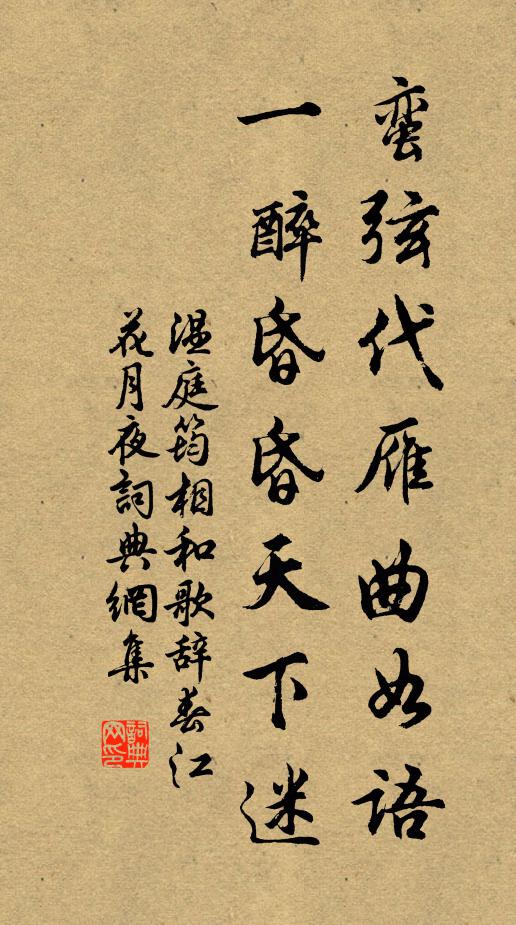 蛮弦代雁曲如語
一醉昏昏天下迷
温庭筠相和歌辞春江
花月夜詞典網集
詞典网印